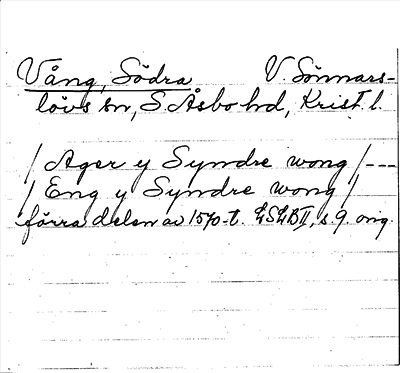 Vång, Södra V. Sönnars-
lövs sn, S. Åsbo hd, Krist. l.
/ Ager y Syndre wong / ---
/ Eng y Syndre wong /
förra delen av 1570-t. LSLB II, s. 9. orig.